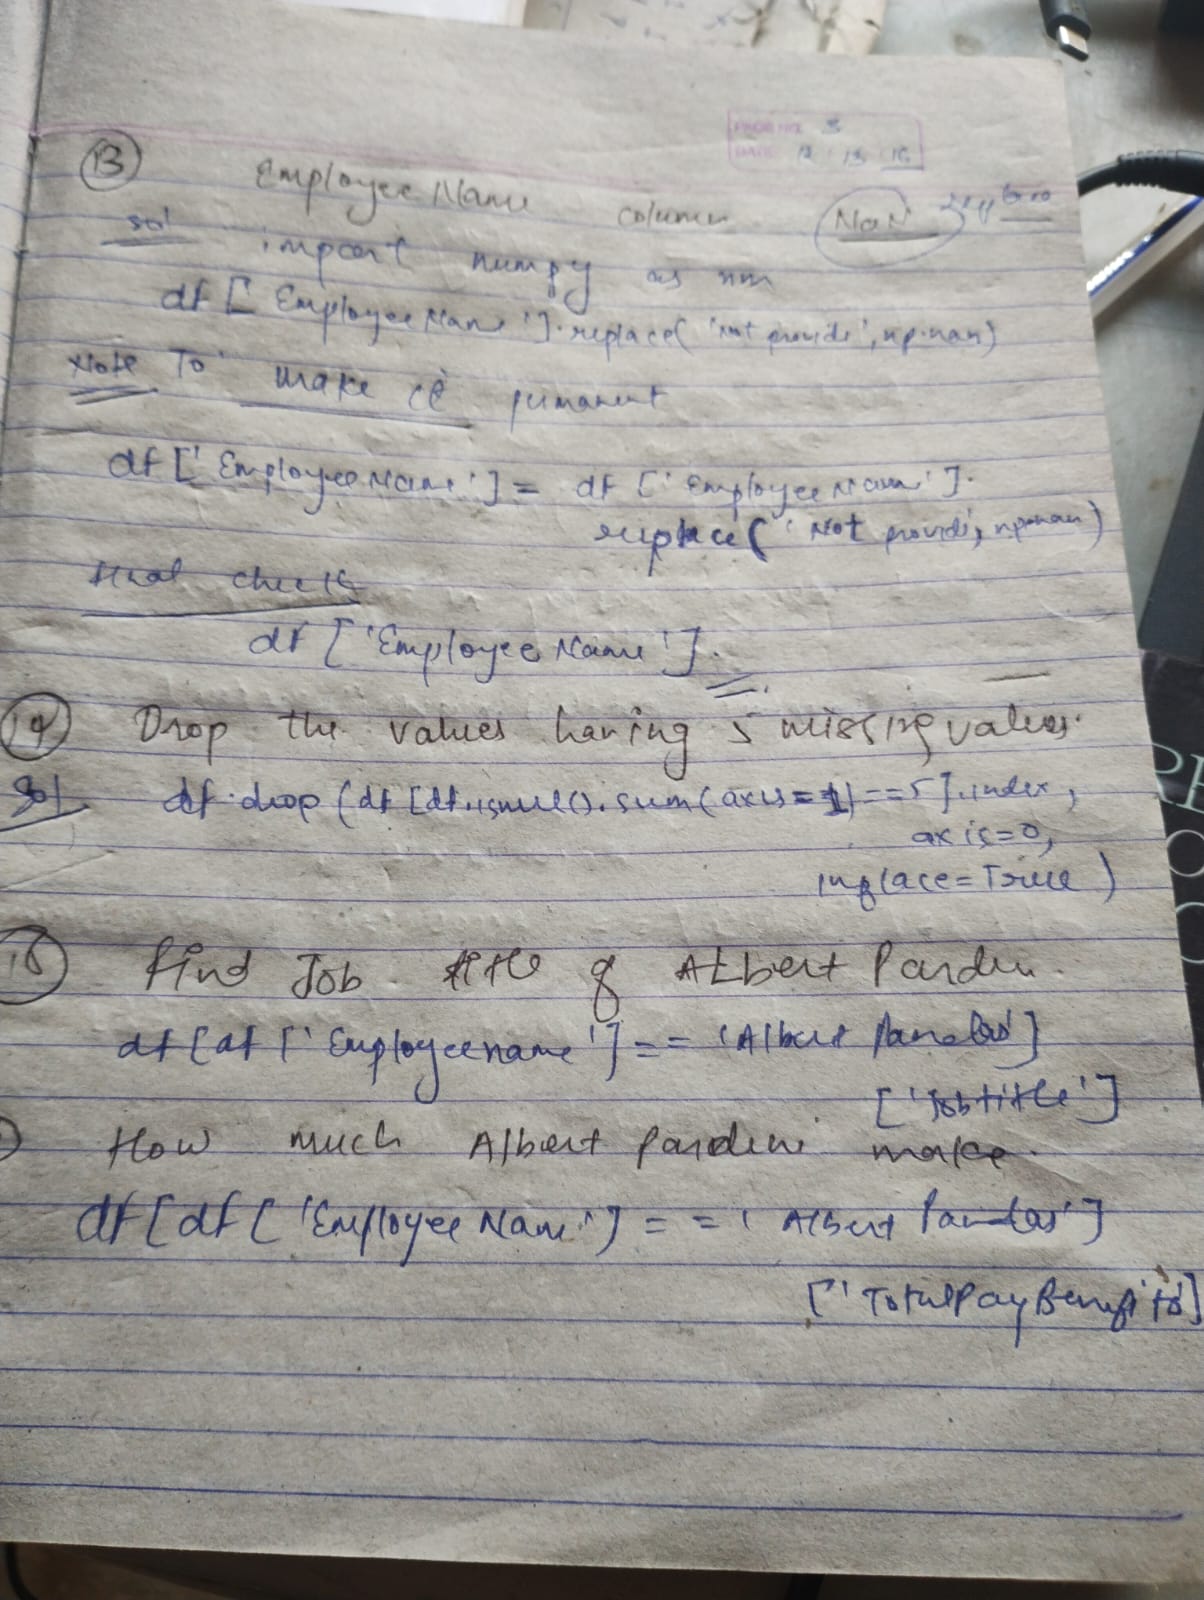 PAGE NO. 3
DATE 12
13 EmployeeName column NaN
sol import numpy as nm
df ['EmployeeName'].replace('not provide', np.nan)
Note To make it permanent
df ['EmployeeName'] = df ['EmployeeName'].
replace('Not provide', np.nan)
check
df ['EmployeeName'].
14 Drop the values having 5 missing values.
Sol df.drop (df [df.isnull().sum(axis=1)==5].index,
axis=0,
inplace=True)
Find Job title of Albert Pardin.
df[df['Employeename']== 'Albert Pandas']
['Jobtitle']
How much Albert Pardini make.
df[df['EmployeeName']== 'Albert Pandas']
['TotalPayBenefits]